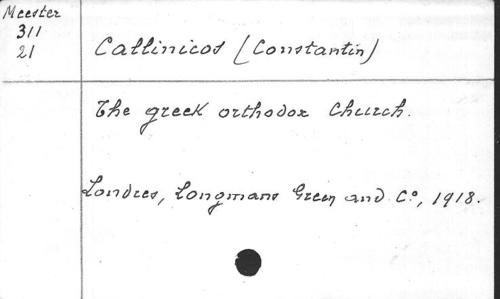 Meester
311
21
Callinicos (Constantin)
The greek orthodox Church.
Londres, Longmans Green and Cº, 1918.